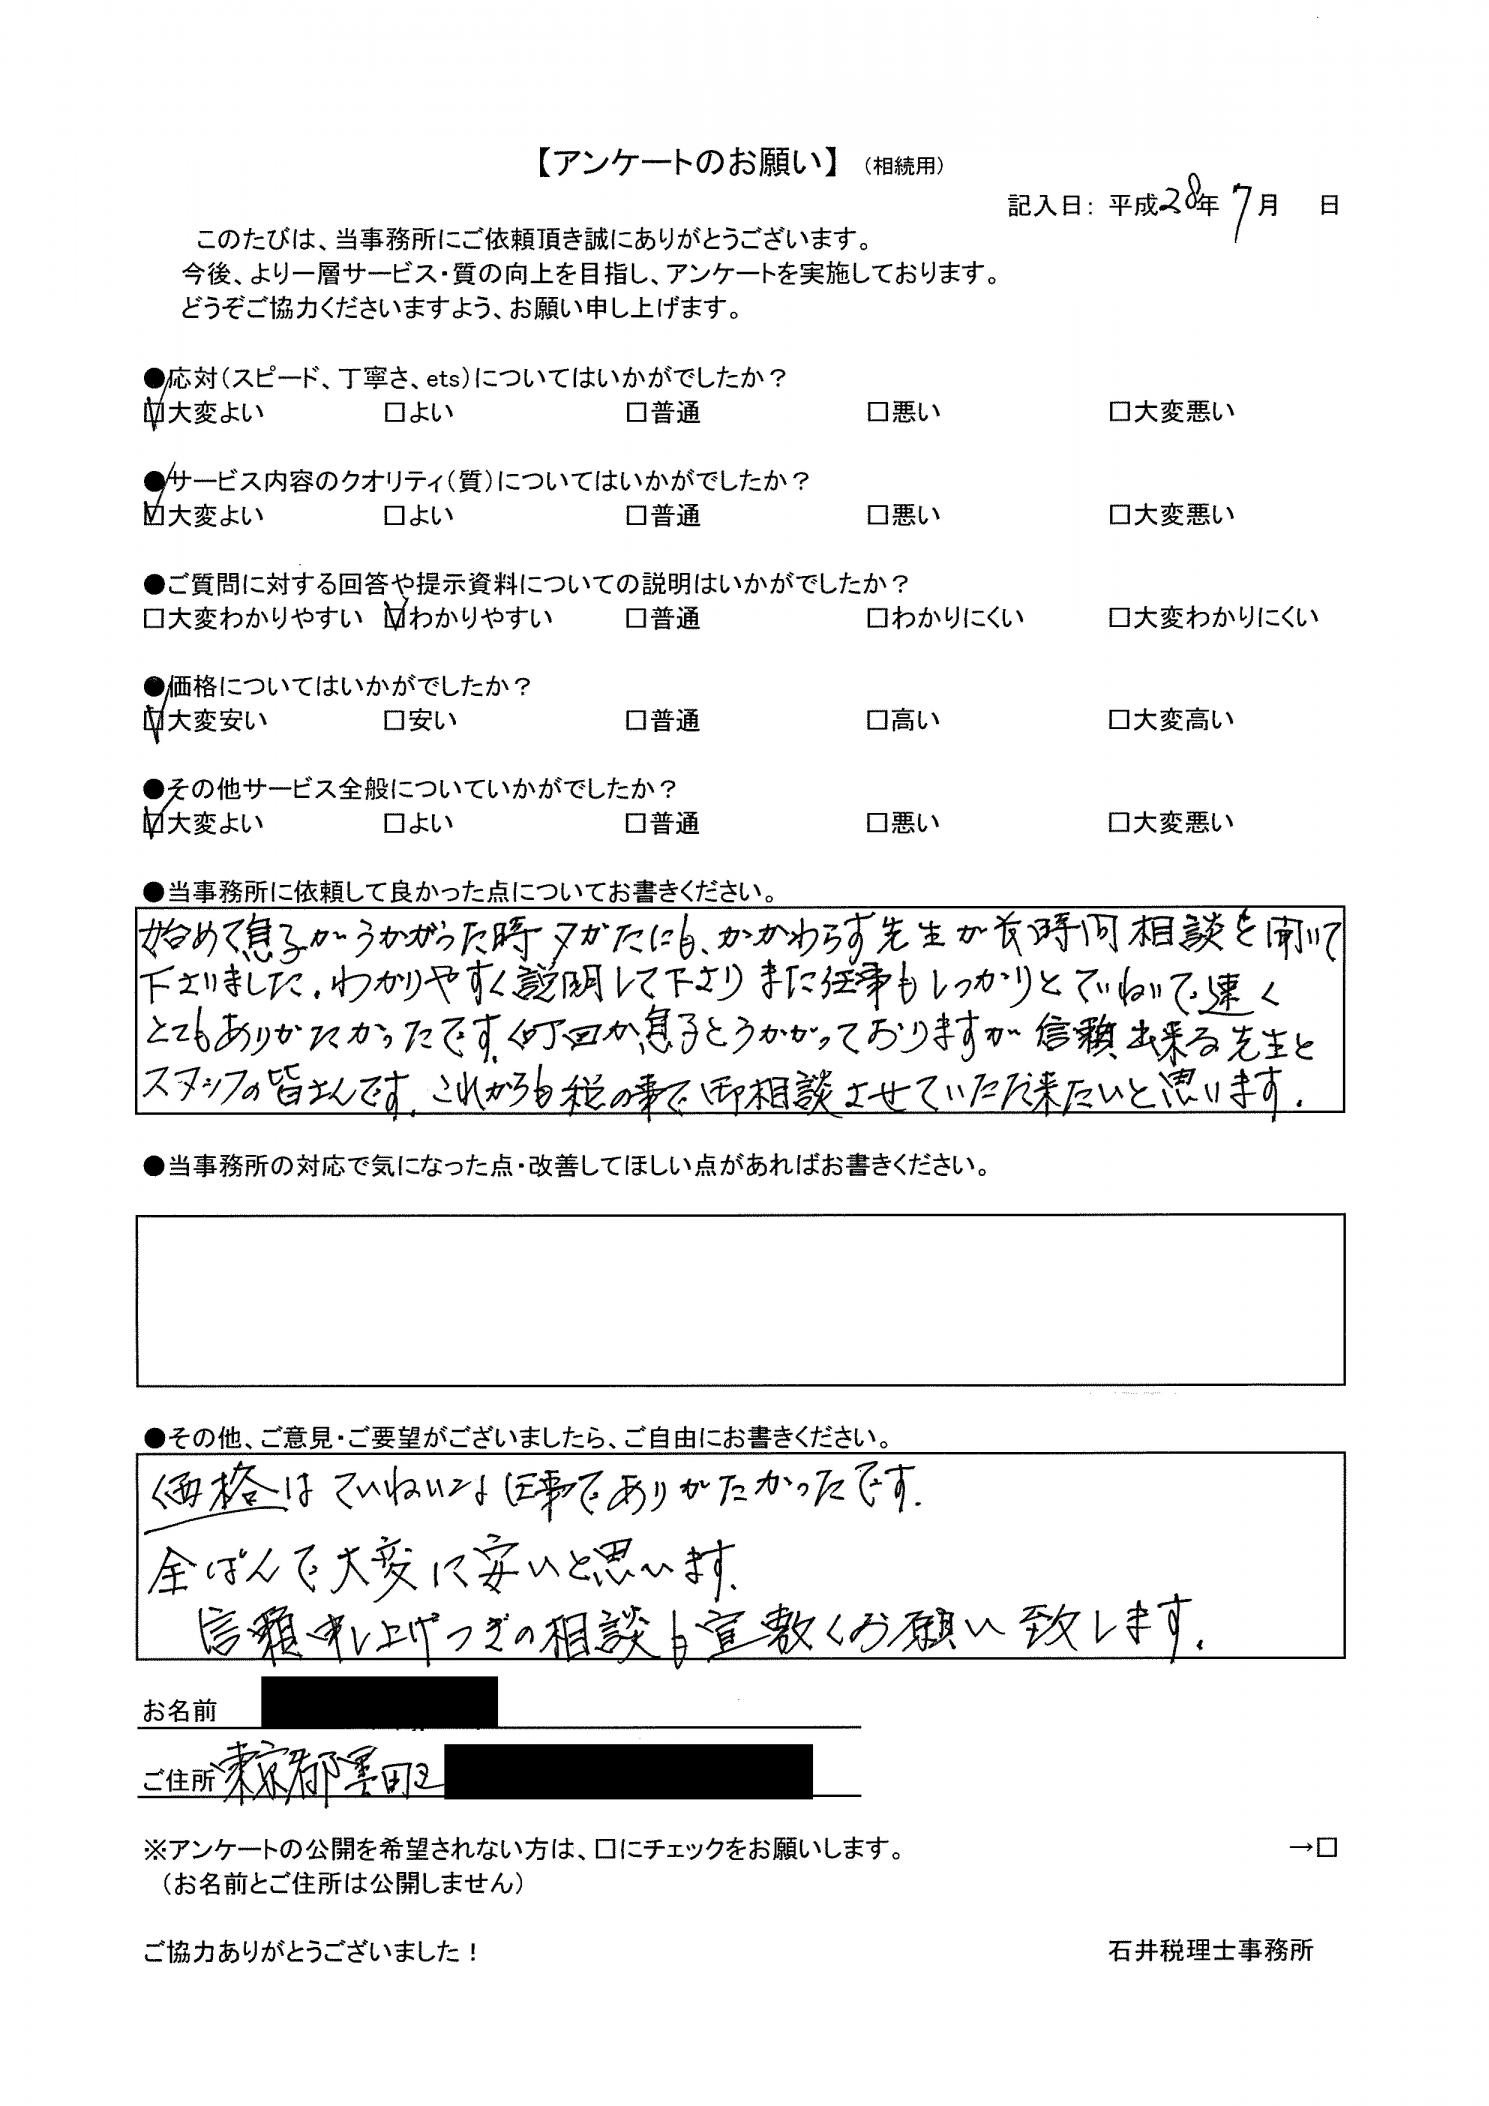 【アンケートのお願い】 （相続用）
記入日： 平成28年 7月 日
このたびは、当事務所にご依頼頂き誠にありがとうございます。
今後、より一層サービス・質の向上を目指し、アンケートを実施しております。
どうぞご協力くださいますよう、お願い申し上げます。
●応対（スピード、丁寧さ、ets）についてはいかがでしたか？
☑大変よい □よい □普通 □悪い □大変悪い
●サービス内容のクオリティ（質）についてはいかがでしたか？
☑大変よい □よい □普通 □悪い □大変悪い
●ご質問に対する回答や提示資料についての説明はいかがでしたか？
□大変わかりやすい ☑わかりやすい □普通 □わかりにくい □大変わかりにくい
●価格についてはいかがでしたか？
☑大変安い □安い □普通 □高い □大変高い
●その他サービス全般についていかがでしたか？
☑大変よい □よい □普通 □悪い □大変悪い
●当事務所に依頼して良かった点についてお書きください。
始めて息子がうかがった時夕がたにも、かかわらず先生が長時間相談を聞いて
下さいました。わかりやすく説明して下さりまた仕事もしっかりとていねいで速く
とてもありがたかったです。何回か息子とうかがっておりますが信頼出来る先生と
スタッフの皆さんです。これからも税の事で御相談させていただ来たいと思います。
●当事務所の対応で気になった点・改善してほしい点があればお書きください。
●その他、ご意見・ご要望がございましたら、ご自由にお書きください。
価格はていねいな仕事でありがたかったです。
全ぱんで大変に安いと思います。
信頼申し上げつぎの相談も宜敷くお願い致します。
お名前
ご住所 東京都墨田区
※アンケートの公開を希望されない方は、□にチェックをお願いします。 →□
（お名前とご住所は公開しません）
ご協力ありがとうございました！ 石井税理士事務所